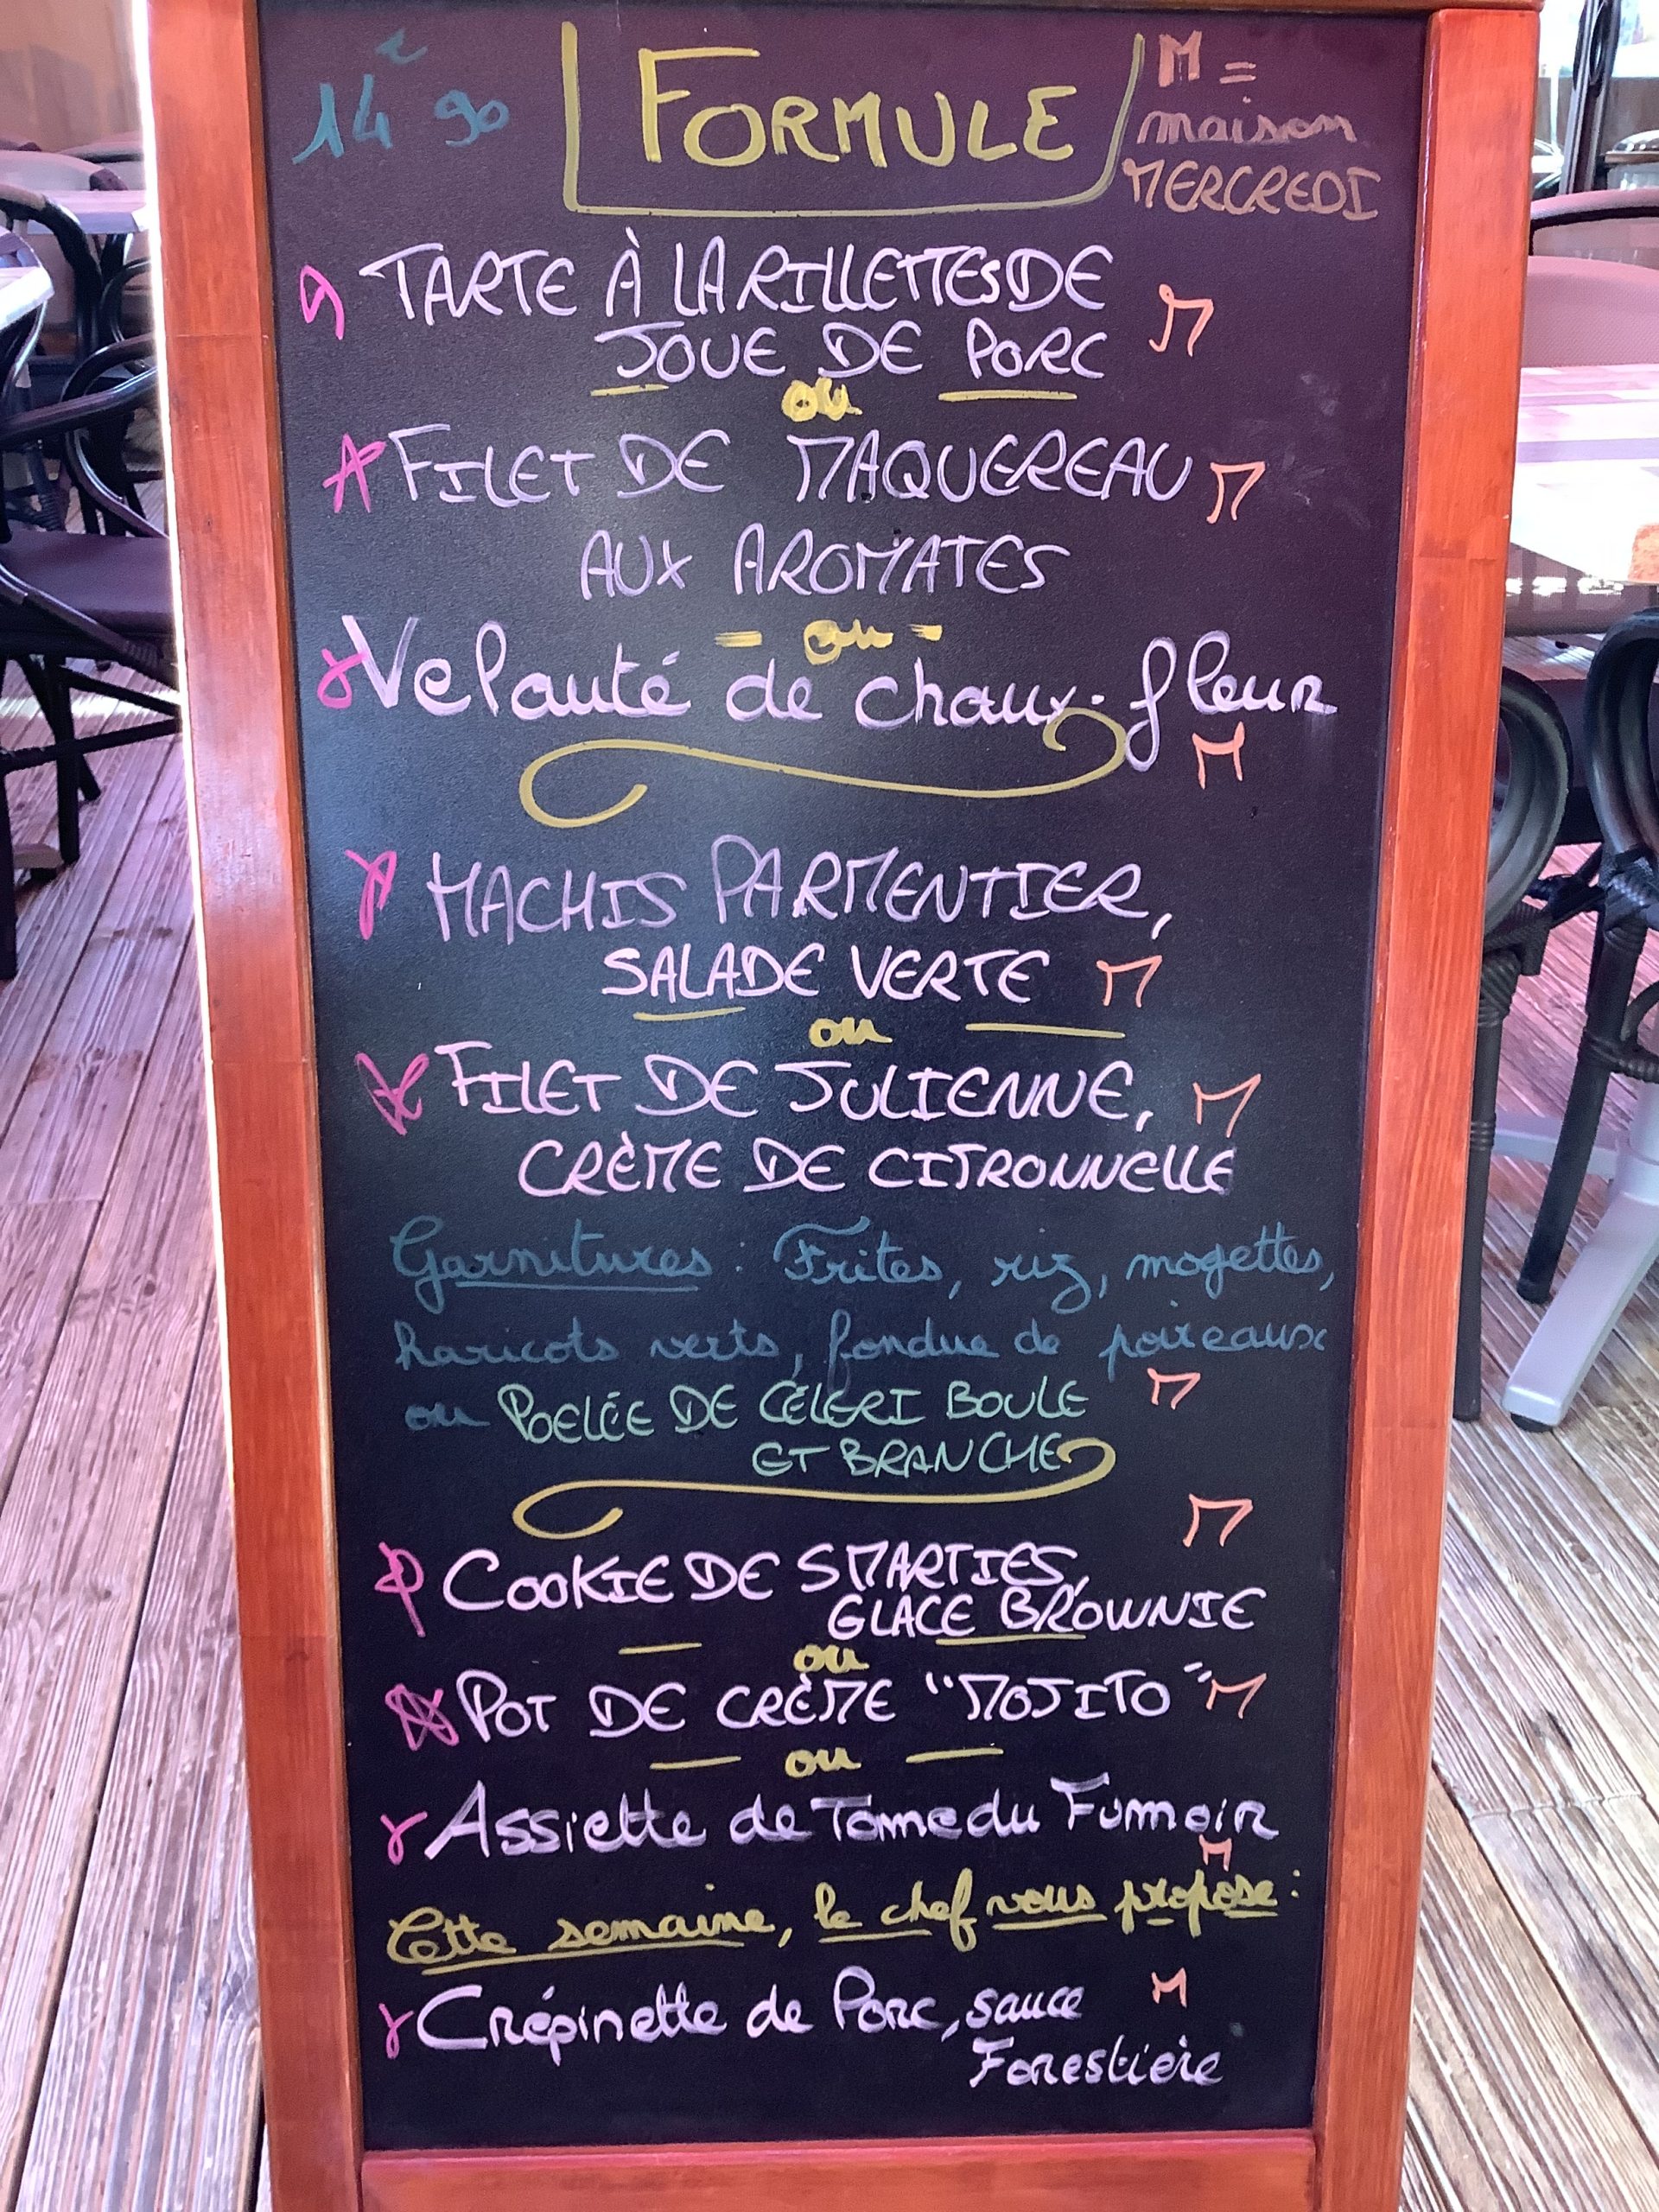 14€90 FORMULE M =
maison
MERCREDI
TARTE À LA RILLETTES DE
JOUE DE PORC M
ou
FILET DE MAQUEREAU M
AUX AROMATES
- ou -
Velouté de choux-fleur
M
HACHIS PARMENTIER,
SALADE VERTE M
ou
FILET DE JULIENNE, M
CRÈME DE CITRONNELLE
Garnitures : Frites, riz, mogettes,
haricots verts, fondue de poireaux
ou POELÉE DE CÉLERI BOULE M
ET BRANCHE
M
COOKIE DE SMARTIES,
GLACE BROWNIE
ou
POT DE CRÈME "MOJITO" M
ou
Assiette de Tomme du Fumoir
M
Cette semaine, le chef vous propose :
Crépinette de Porc, sauce M
Forestière